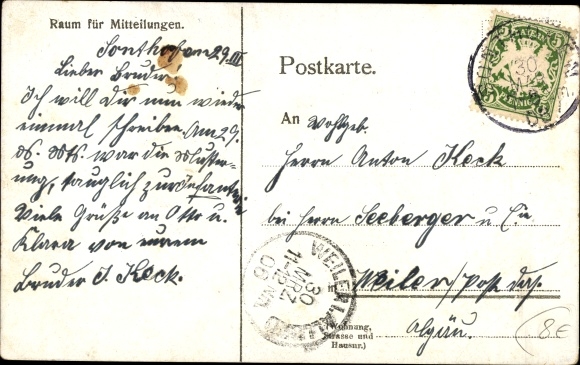 Raum für Mitteilungen.
Sonthofen 29. III
Lieber Bruder!
Ich will Dir nun wieder
einmal schreiben. Am 29.
ds. Mts. war die Muster-
ung, tauglich zur Infanterie
Viele Grüße an Otto u.
Klara von eurem
Bruder J. Keck.
Postkarte.
An Wohlgeb.
Herrn Anton Keck
bei Herrn Seeberger u. Cie
in Weiler/Post das.
Algäu.
(Wohnung,
Strasse und
Hausnr.)
WEILER I. ALLGÄU
30
MRZ
06
8€